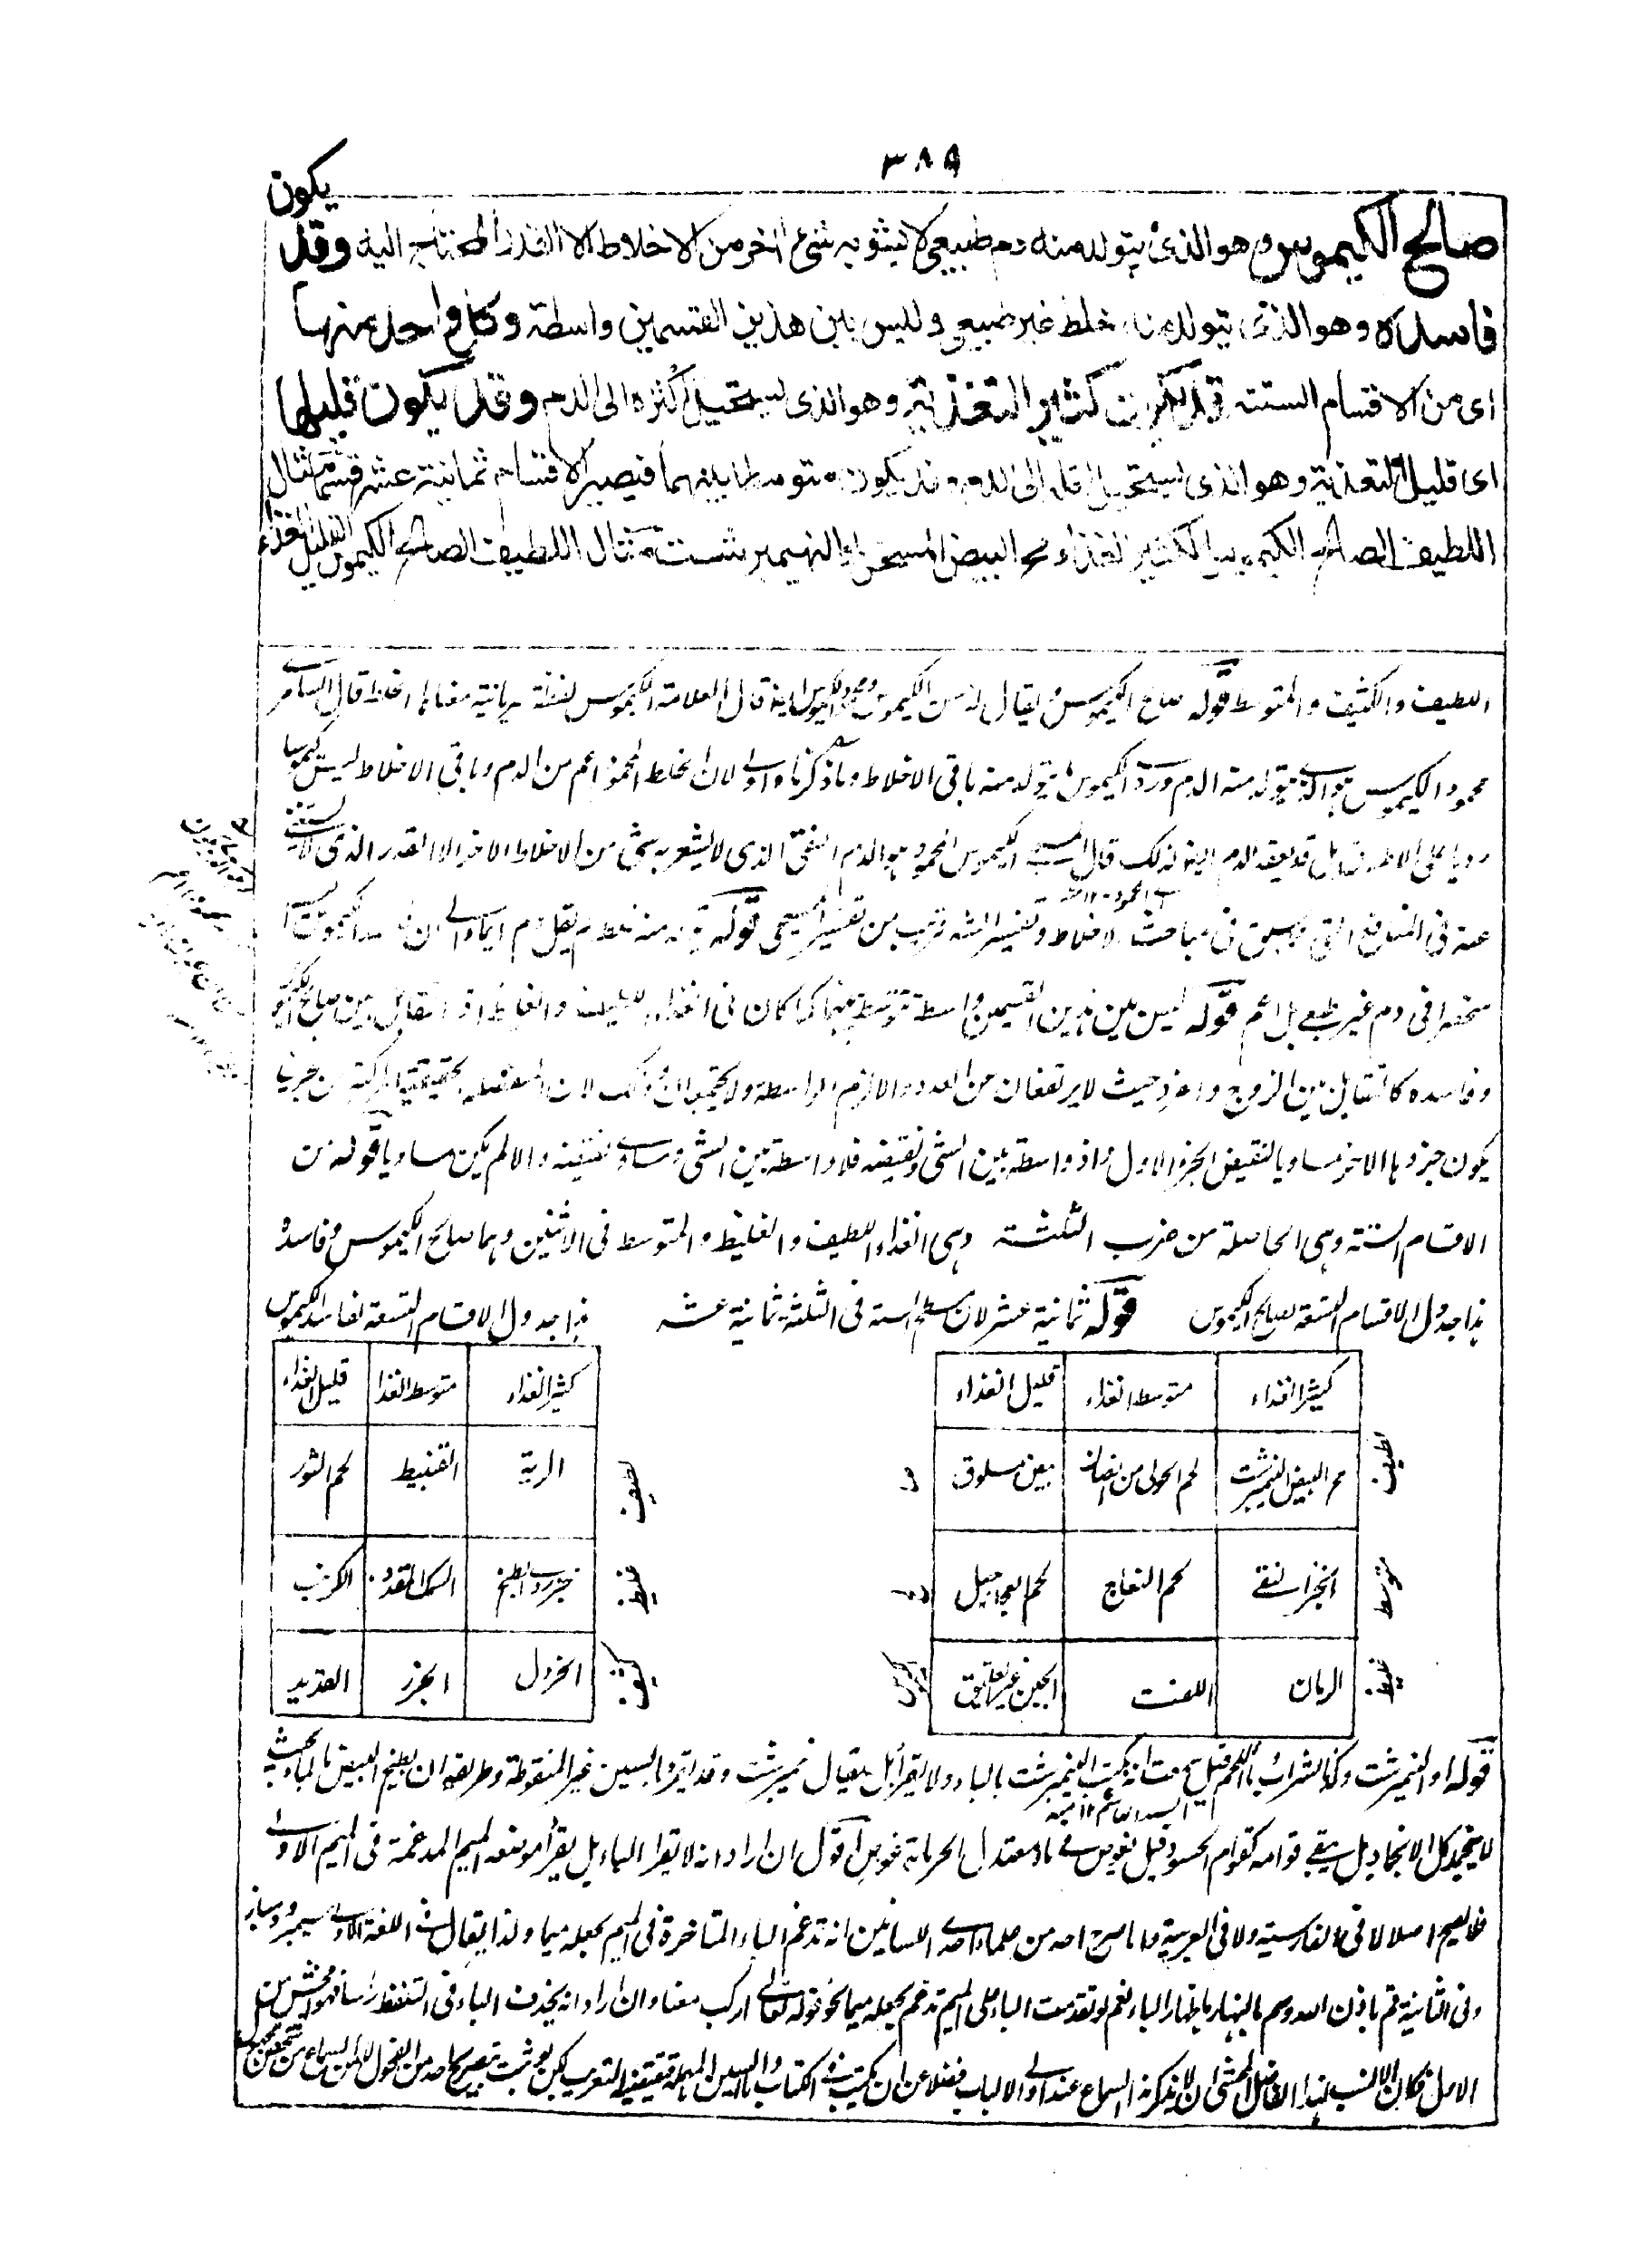 ٣٨٩
يكون
صالح الكيموس وهو الذى يتولد منه دم طبيعى لا يشوبه شىء اخر من الاخلاط الا القدر المحتاج اليه وقد
فاسده وهو الذى يتولد منه خلط غير طبيعى وليس بين هذين القسمين واسطة وكل واحد منها
اى من الاقسام الستة قد يكون كثير التغذية وهو الذى يستحيل اكثره الى الدم وقد يكون قليلها
اى قليل التغذية وهو الذى يستحيل اقله الى الدم وقد يكون متوسطا بينهما فيصير الاقسام ثمانية عشر قسما مثال
اللطيف الصالح الكيموس الكثير الغذاء مح البيض المسخن او النيمبرشت مثال اللطيف الصالح الكيموس القليل الغذاء
اللطيف والكثيف والمتوسط قوله صالح الكيموس ويقال له حسن الكيموس ومحمود الكيموس ايضا قال العلامة الكيموس لفظة سريانية معناها الخلط قال
محمود الكيموس هو الذى يتولد منه الدم وردى الكيموس ما يتولد منه باقى الاخلاط وما ذكرناه اولى لان الخلط المحمود اعم من الدم وباقى الاخلاط ليس كيموسا
رديا على الاطلاق بل قد يعقد الدم ايضا لذلك قال الكيموس المحمود هو الدم النقى الذى لا يشوبه شئ من الاخلاط الاخر الا القدر الذى لا يستغنى
عنه فى المنافع التى سبق فى مباحث الاخلاط وتفسير الشه قريب من تفسير المسيحى قوله يتولد منه خلط لم يقل دم ايماء الى ان فاسد الكيموس ليس
منحصرا فى دم غير طبيعى بل اعم قوله ليس بين هذين القسمين واسطة متوسط بينهما كما كان فى الغذاء اللطيف والغليظ اذ التقابل بين صالح الكيموس
وفاسده كالتقابل بين الزوج والفرد حيث لا يرتفعان من العدد والا لزم الواسطة ولا يجتمعان وذلك لان المنفصلة الحقيقية المركبة من جزئين
يكون جزوها الاخر مساويا لنقيض الجزو الاول واذ لا واسطة بين الشئ ونقيضه فلا واسطة بين الشئ ومساوى نقيضه والا لم يكن مساويا قوله من
الاقسام الستة وهى الحاصلة من ضرب الثلثة وهى الغذاء اللطيف والغليظ والمتوسط فى الاثنين وهما صالح الكيموس وفاسده
هذا جدول الاقسام التسعة لصالح الكيموس قوله ثمانية عشر لان مسطح الستة فى الثلثة ثمانية عشر هذا جدول الاقسام التسعة لفاسد الكيموس
كثير الغذاء متوسط الغذاء قليل الغذاء
لطيف مح البيض النيمبرشت لحم الحولى من الضان بيض مسلوق
متوسط الخبز النقى لحم النعاج لحم العجاجيل
غليظ الرمان اللفت الجبن غير العتيق
كثير الغذاء متوسط الغذا قليل الغذاء
لطيف الرية القنبيط لحم الثور
غليظ السمك المقدد الكرنب
الخردل الجزر القديد
قوله او النيمبرشت وكذا الشراب بماء اللحم قيل سمعت انه يكتب النيمبرشت بالباء ولا يقرأ بل يقال نيمرشت وقد يقرؤ بالسين غير المنقوطة وطريقه ان يطبخ البيض بالماء بحيث
لا ينجمد كل الانجماد بل يبقى قوامه كقوام الحسو وقيل يغوص فى ماء معتدل الحر مائة غوص اقول ان اراد انه لا يقرأ الباء بل يقرأ موضعه الميم المدغمة فى الميم الاولى
فلا يصح اصلا لا فى الفارسية ولا فى العربية وما صرح احد من علماء احدى اللسانين انه تدغم الباء المتاخرة فى الميم بجعله ميما ولذا يقال فى اللغة الاولى
وفى الثانية قم باذن الله وسم بالنهار باظهار الباء نعم لو تقدمت الباء على الميم تدغم بجعله ميما نحو قوله تعالى اركب معنا وان اراد انه يحذف الباء فى التلفظ رأسا فهو افحش من
الاول فكان الانسب لهذا الفاضل المحشى ان لا يذكر هذا السماع عند اولى الالباب فضلا عن ان يكتب فى الكتاب والسين المهملة يقتضيه التعريب لكن لو ثبت تصريح احد من الفحول